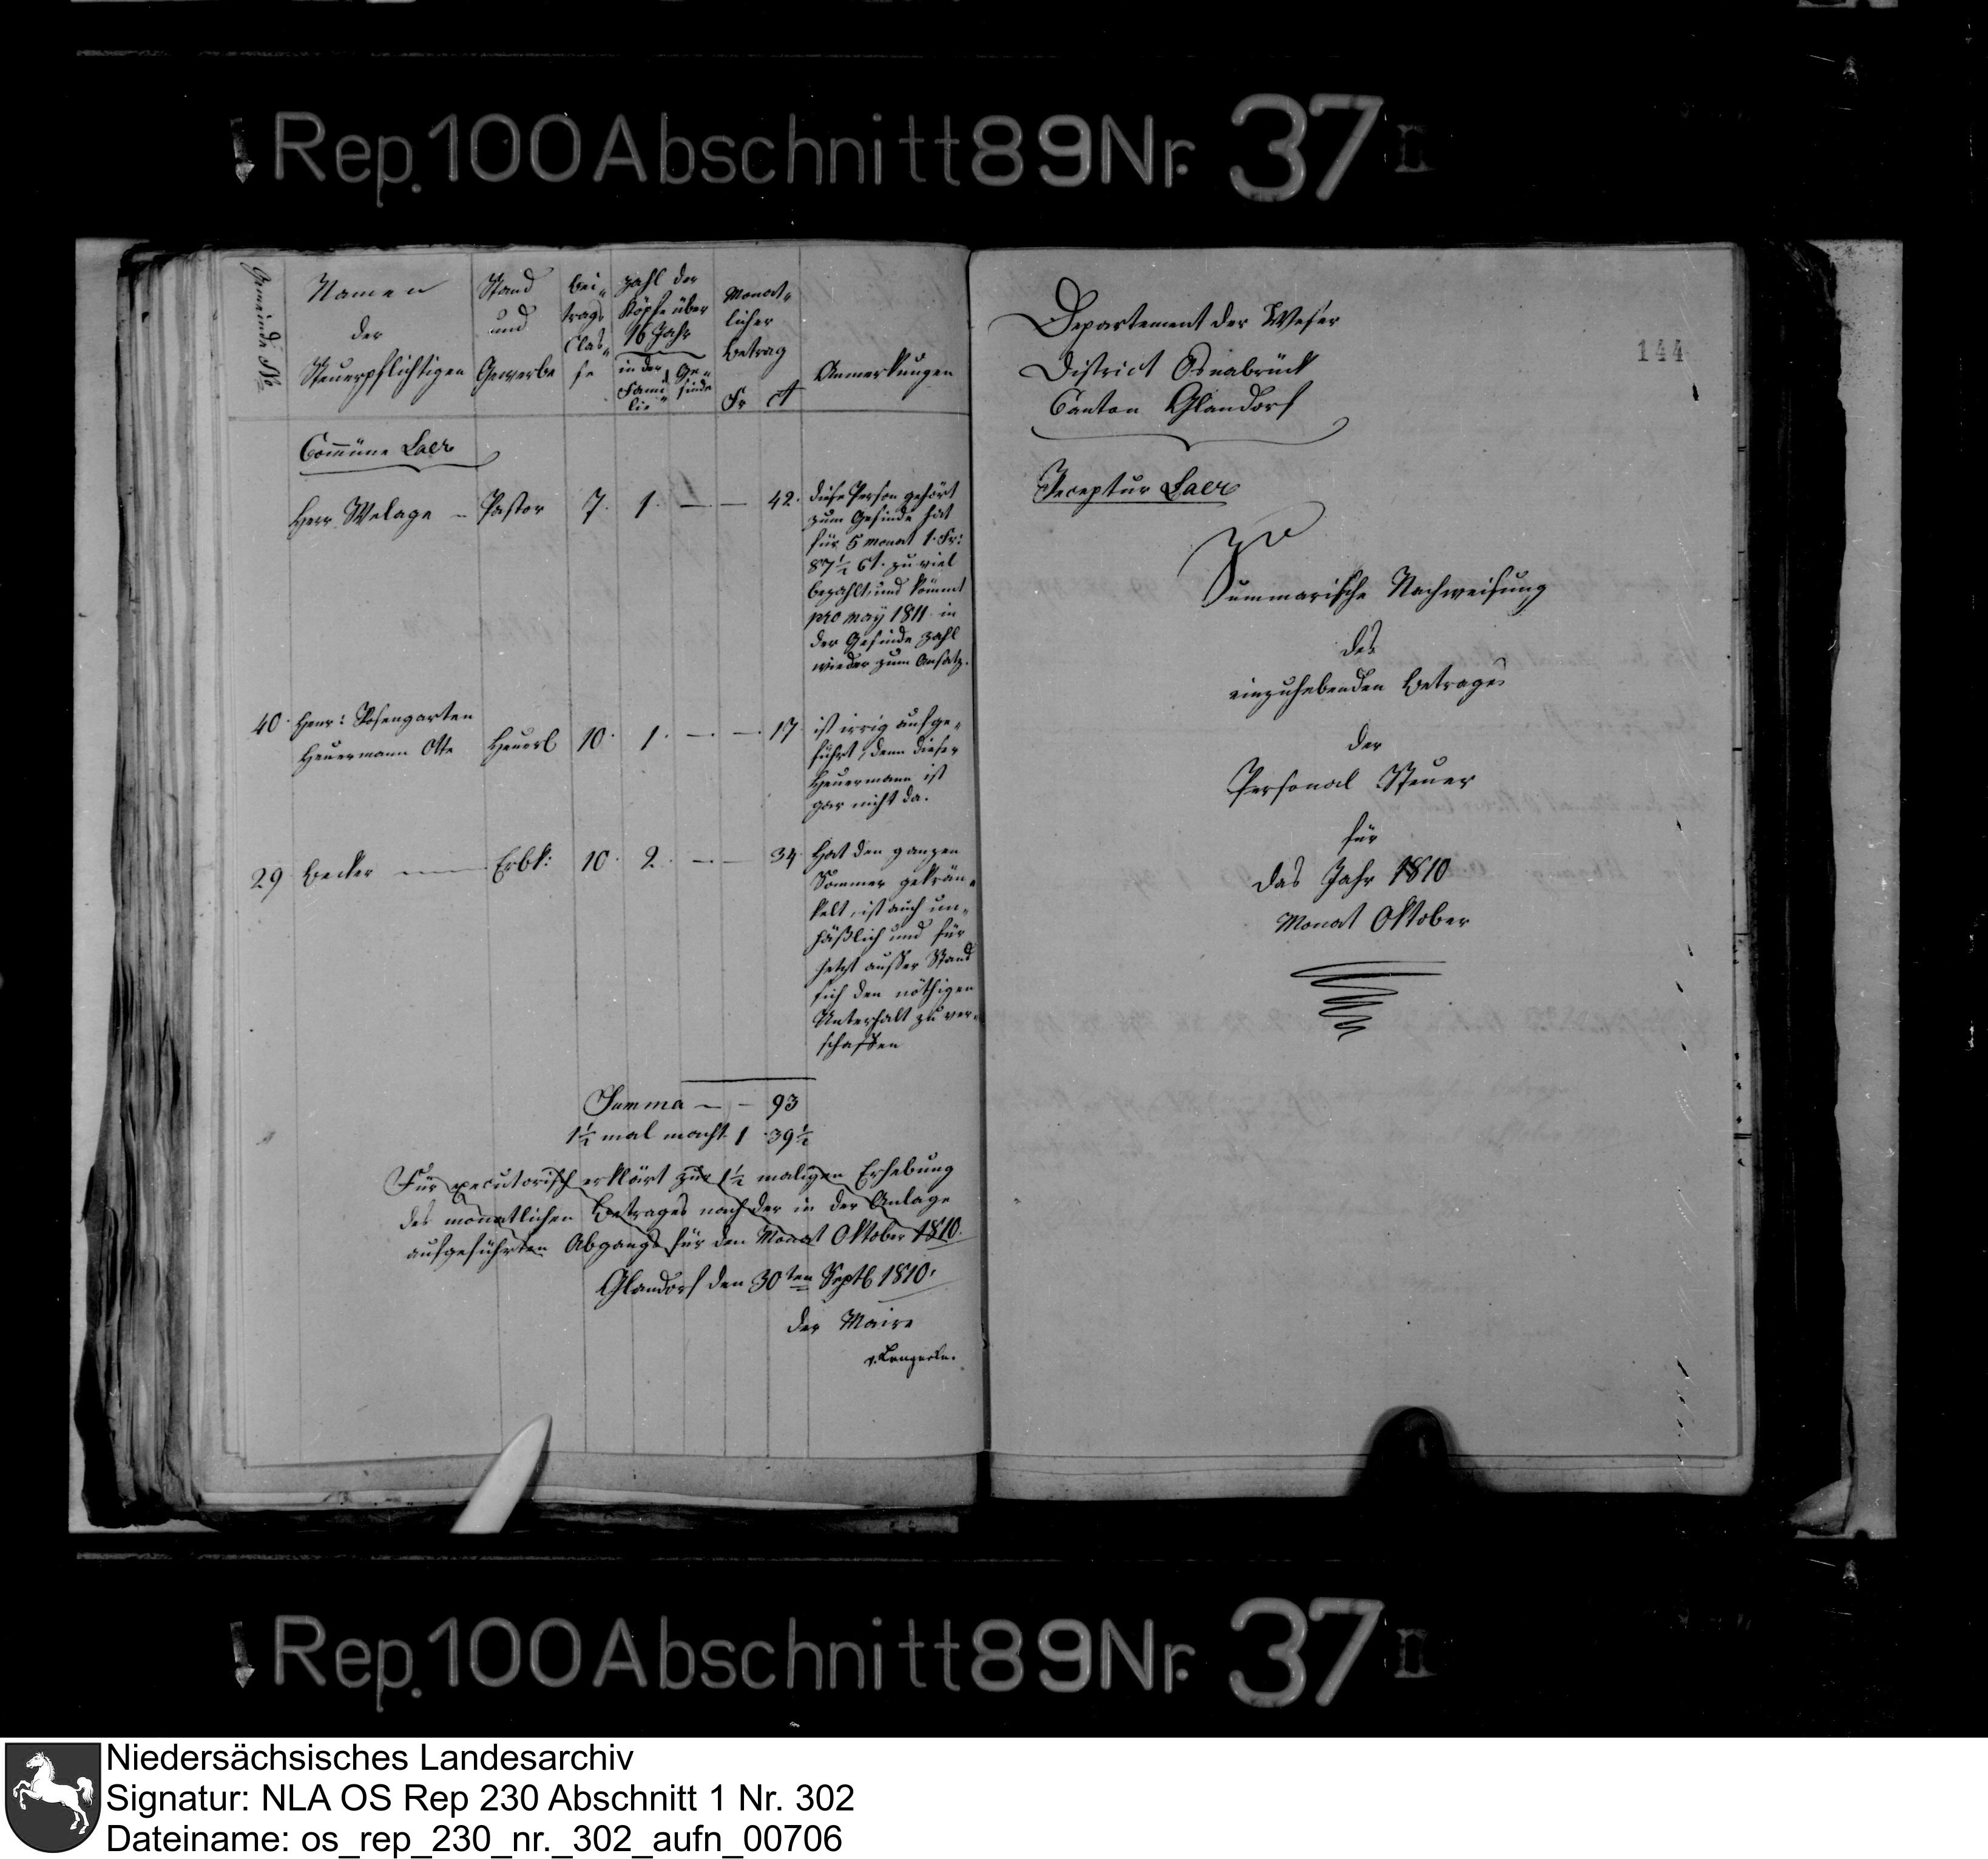 Rep. 100 Abschnitt 89 Nr. 37 II
Gemeinde No
Namen
der
Steuerpflichtigen
Stand
und
Gewerbe
Bei-
trags
Clas-
se
Zahl der
Köpfe über
16 Jahr
in der
Fami-
lie
Ge-
sinde
Monat-
licher
Betrag
Fr
Ct
Anmerkungen
Com̄üne Laer
Herr Welage – Pastor 7. 1. — — 42. diese Person gehört
zum Gesinde hat
für 5 monat 1. Fr:
87½ Ct. zu viel
bezahlt, und kömmt
pro may 1811 in
der Gesinde Zahl
wieder zum Ansatz.
40. Henr: Rosengarten
Heuermann Otte Heuerl 10. 1. — — 17. ist irrig aufge-
führt, denn dieser
Heuermann ist
gar nicht da.
29 Becker — Erbk: 10. 2. — — 34. Hat den ganzen
Sommer gekrän-
kelt, ist auch un-
päßlich und für
jetzt ausser Stand
sich den nöthigen
Unterhalt zu ver-
schaffen
Summa — — 93
1½ mal macht 1 39½
Für executorisch erklärt zur 1½ maligen Erhebung
des monatlichen Betrages nach der in der Anlage
aufgeführten Abgangs für den Monat Oktober 1810.
Glandorf den 30ten Septb 1810.
der Maire
144
Departement der Weser
District Osnabrück
Canton Glandorf
Receptur Laer
Summarische Nachweisung
des
einzuhebenden Betrages
der
Personal Steuer
für
das Jahr 1810
Monat Oktober
Rep. 100 Abschnitt 89 Nr. 37 II
Niedersächsisches Landesarchiv
Signatur: NLA OS Rep 230 Abschnitt 1 Nr. 302
Dateiname: os_rep_230_nr._302_aufn_00706